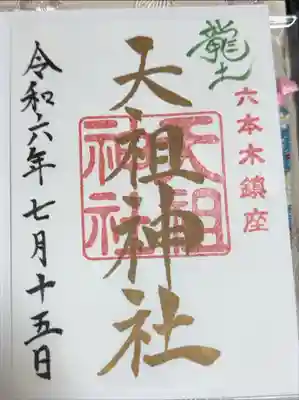 六本木鎮座
龍土
天祖神社
天祖神社
令和六年七月十五日